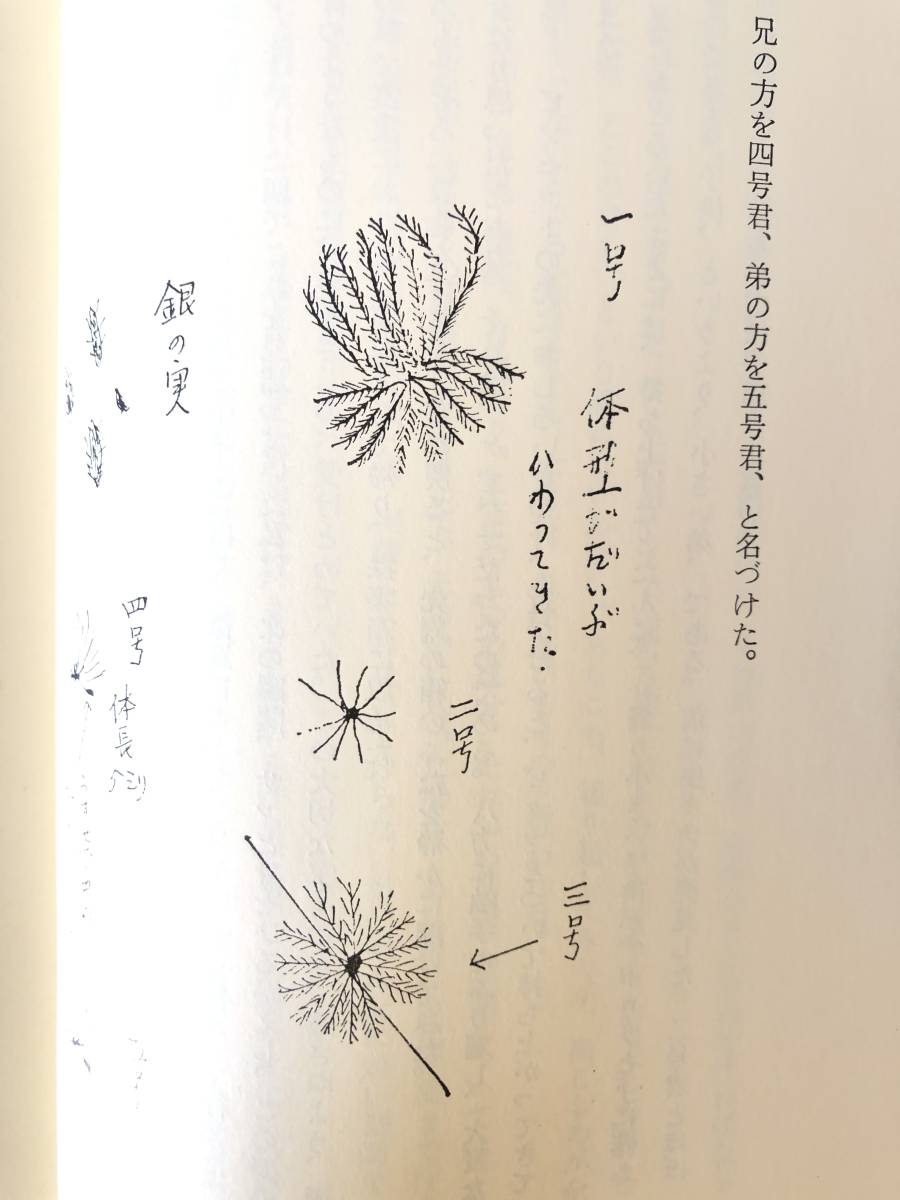 兄の方を四号君、弟の方を五号君、と名づけた。
一号
体型上がだいぶ
かわってきた.
二号
三号
銀の実
四号
体長